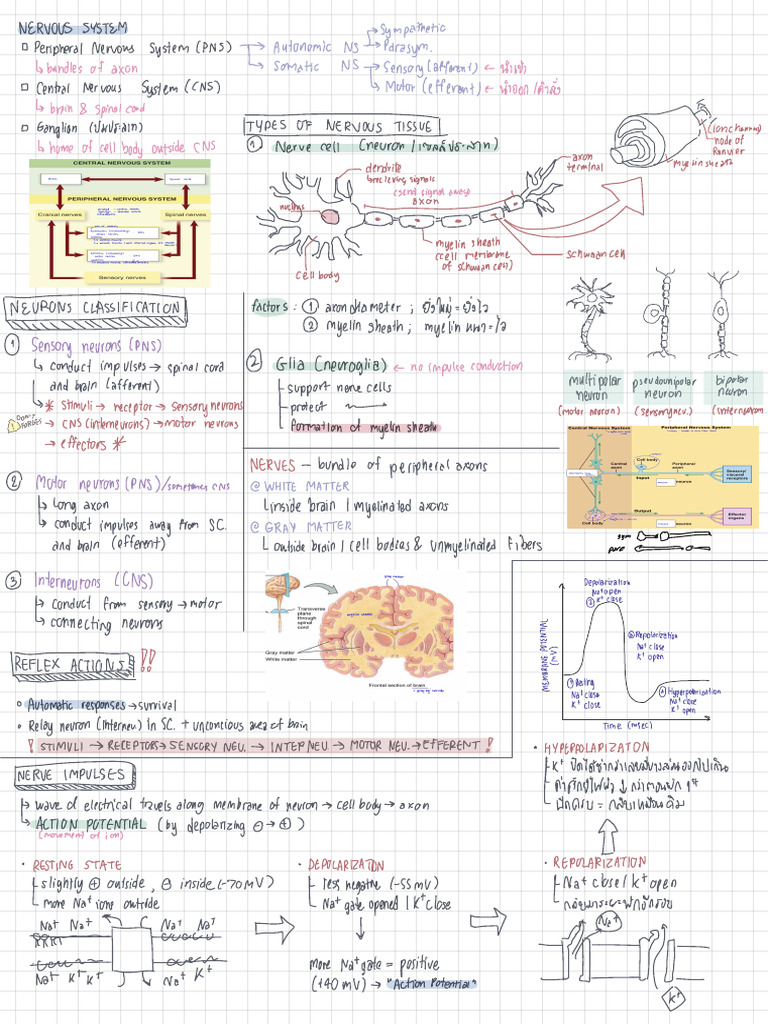 NERVOUS SYSTEM
Peripheral Nervous System (PNS)
bundles of axon
Central Nervous System (CNS)
brain & spinal cord
Ganglion (ปมประสาท)
home of cell body outside CNS
Autonomic NS
Sympathetic
Parasym.
Somatic NS
Sensory (afferent) ← นำเข้า
Motor (efferent) ← นำออก/คำสั่ง
CENTRAL NERVOUS SYSTEM
PERIPHERAL NERVOUS SYSTEM
Cranial nerves
Spinal nerves
Sensory nerves
TYPES OF NERVOUS TISSUE
① Nerve cell (neuron/เซลล์ประสาท)
dendrite
receiving signals
(send signal away)
axon
axon terminal
nucleus
cell body
myelin sheath
(cell membrane
of schwann cells)
schwann cell
node of
Ranvier
myelin sheath
NEURONS CLASSIFICATION
① Sensory neurons (PNS)
conduct impulses → spinal cord
and brain (afferent)
* stimuli → receptor → sensory neurons
→ CNS (interneurons) → motor neurons
→ effectors *
DON'T FORGET
② Motor neurons (PNS)/sometimes CNS
Long axon
conduct impulses away from SC.
and brain (efferent)
③ Interneurons (CNS)
conduct from sensory → motor
connecting neurons
factors : ① axon diameter ; ยิ่งใหญ่ = ยิ่งไว
② myelin sheath ; myelin หนา = ไว
② Glia (neuroglia) ← no impulse conduction
support nerve cells
protect
formation of myelin sheath
multipolar
neuron
(motor neuron)
pseudounipolar
neuron
(sensory neu.)
bipolar
neuron
(interneuron)
NERVES – bundle of peripheral axons
@ WHITE MATTER
inside brain / myelinated axons
@ GRAY MATTER
outside brain / cell bodies & unmyelinated fibers
Central Nervous System
Peripheral Nervous System
Cell body
Central
axon
Peripheral
axon
Input
neuron
Sensory/
visceral
receptors
Output
neuron
Effector
organs
Cell body
sym
para
Transverse
plane through
spinal
cord
Gray matter
White matter
Frontal section of brain
REFLEX ACTIONS !!
Automatic responses → survival
Relay neuron (interneu.) in SC. + unconcious area of brain
! STIMULI → RECEPTORS → SENSORY NEU. → INTERNEU. → MOTOR NEU. → EFFERENT !
MEMBRANE POTENTIAL
(mV)
Time (msec)
① Resting
Na⁺ close
K⁺ close
Depolarization
Na⁺ open
② K⁺ close
③ Repolarization
Na⁺ close
K⁺ open
④ Hyperpolarization
Na⁺ close
K⁺ open
NERVE IMPULSES
wave of electrical travels along membrane of neuron → cell body → axon
ACTION POTENTIAL (by depolarizing ⊖ → ⊕)
(movement of ion)
RESTING STATE
slightly ⊕ outside, ⊖ inside (-70 mV)
more Na⁺ ions outside
Na⁺ Na⁺ Na⁺ Na⁺
Na⁺ K⁺ K⁺ Na⁺ K⁺
DEPOLARIZATION
less negative (-55 mV)
Na⁺ gate opened / K⁺ close
more Na⁺ gate = positive
(+40 mV) → "Action Potential"
HYPERPOLARIZATON
REPOLARIZATION
Na⁺ close / K⁺ open
Na⁺
K⁺